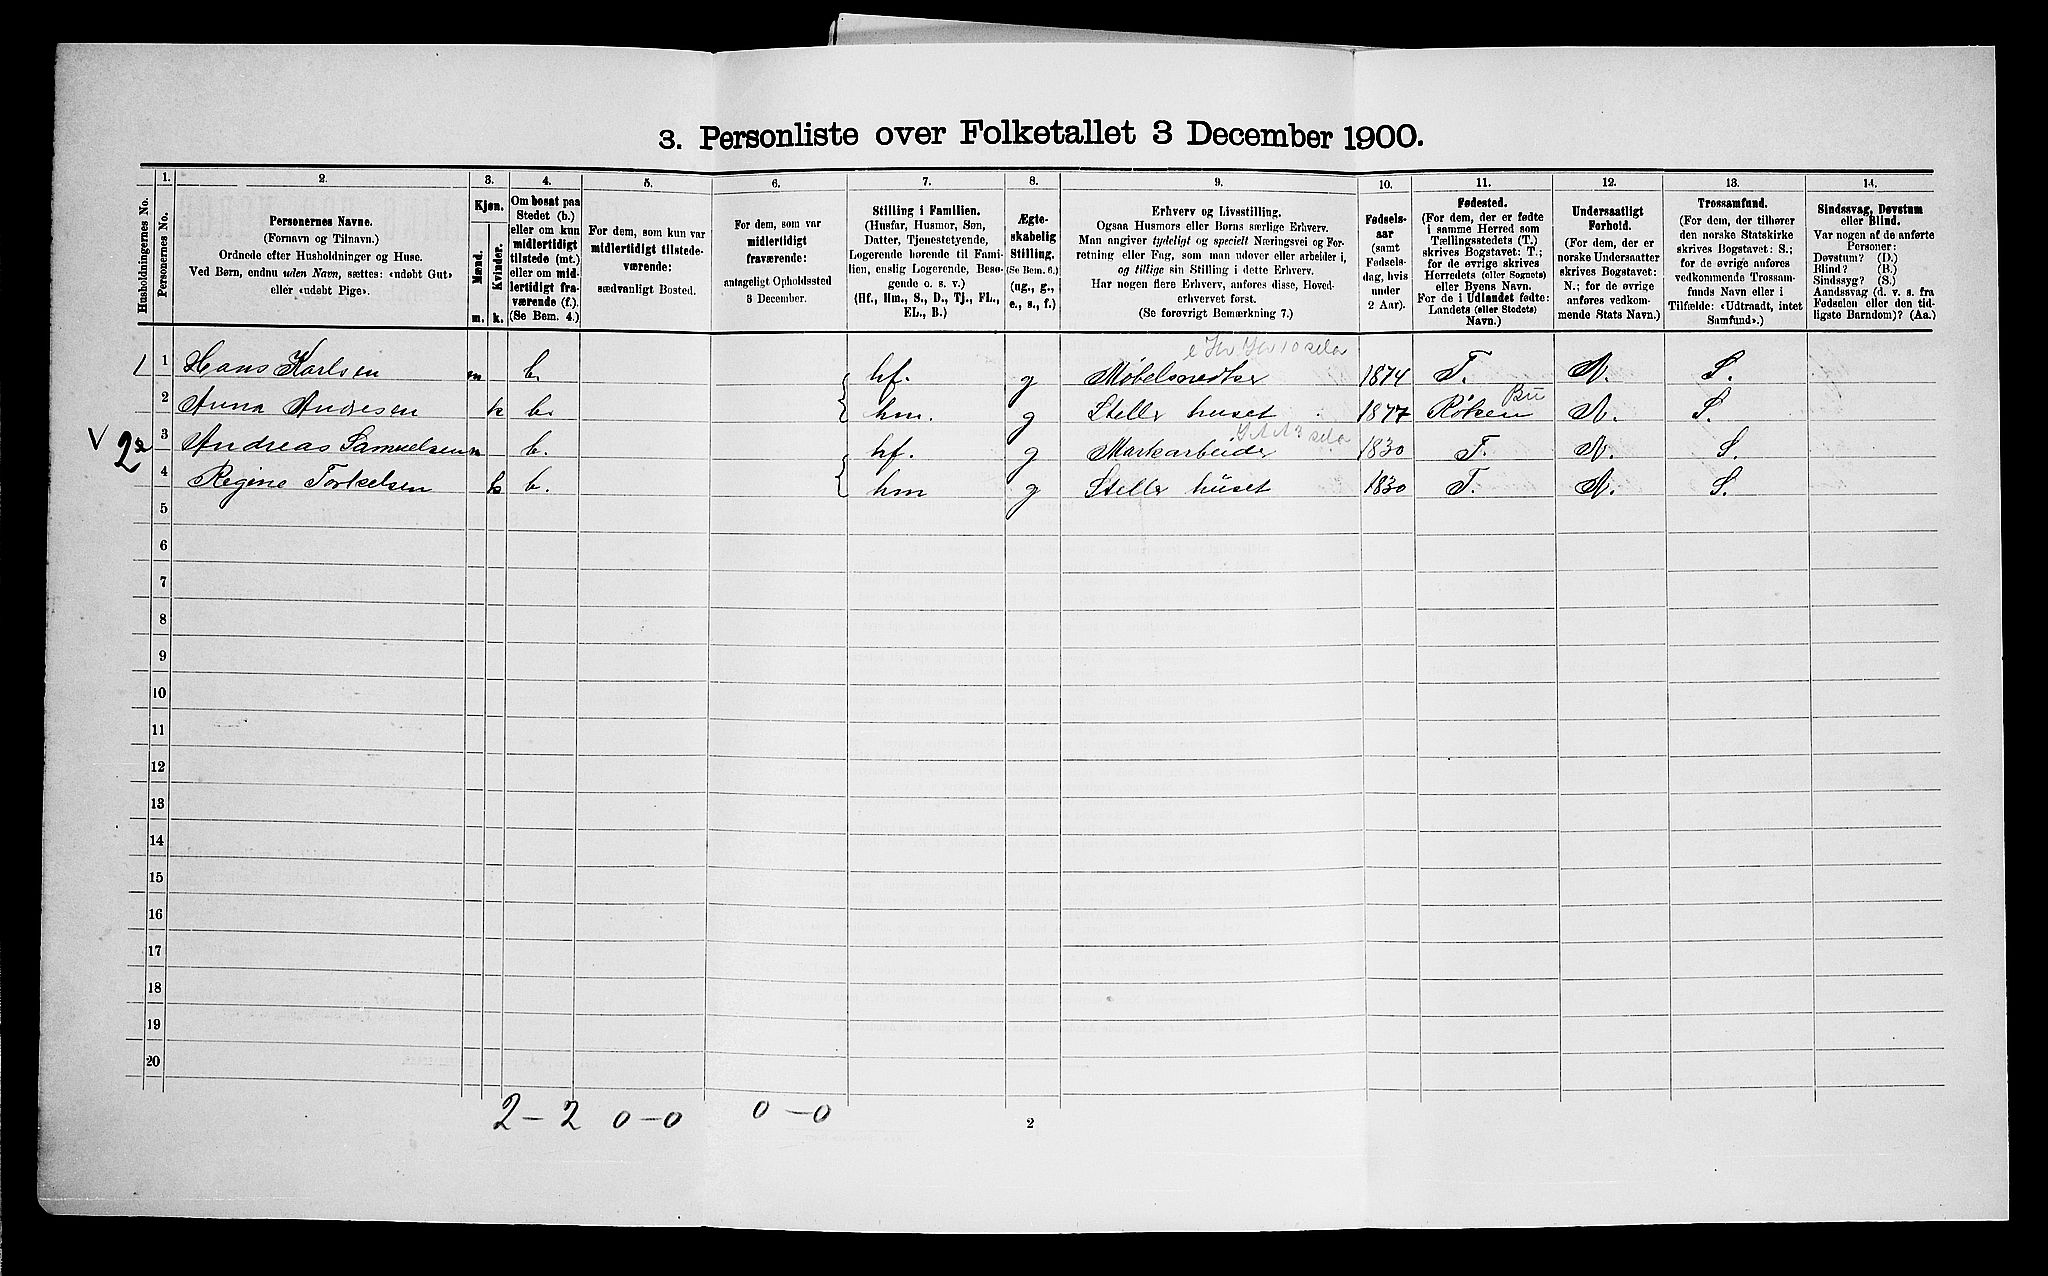 3. Personliste over Folketallet 3 December 1900.
Husholdningernes No.
1.
Personernes No.
2.
Personernes Navne.
(Fornavn og Tilnavn.)
Ordnede efter Husholdninger og Huse.
Ved Børn, endnu uden Navn, sættes: «udøbt Gut»
eller «udøbt Pige».
3.
Kjøn.
Mænd.
Kvinder.
m.
k.
4.
Om bosat paa
Stedet (b.)
eller om kun
midlertidigt
tilstede (mt.)
eller om mid-
lertidigt fra-
værende (f.).
(Se Bem. 4.)
5.
For dem, som kun var
midlertidigt tilstede-
værende:
sædvanligt Bosted.
6.
For dem, som var
midlertidigt
fraværende:
antageligt Opholdssted
3 December.
7.
Stilling i Familien.
(Husfar, Husmor, Søn,
Datter, Tjenestetyende,
Logerende hørende til Fami-
lien, enslig Logerende, Besø-
gende o. s. v.)
(Hf., Hm., S., D., Tj., FL.,
EL., B.)
8.
Ægte-
skabelig
Stilling.
(Se Bem. 6.)
(ug., g.,
e., s., f.)
9.
Erhverv og Livsstilling.
Ogsaa Husmors eller Børns særlige Erhverv.
Man angiver tydeligt og specielt Næringsvei og For-
retning eller Fag, som man udøver eller arbeider i,
og tillige sin Stilling i dette Erhverv.
Har nogen flere Erhverv, anføres disse, Hoved-
erhvervet først.
(Se forøvrigt Bemærkning 7.)
10.
Fødsels-
aar
(samt
Fødsels-
dag, hvis
under
2 Aar).
11.
Fødested.
(For dem, der er fødte
i samme Herred som
Tællingsstedets (T.)
skrives Bogstavet: T.;
for de øvrige skrives
Herredets (eller Sognets)
eller Byens Navn.
For de i Udlandet fødte:
Landets (eller Stedets)
Navn.)
12.
Undersaatligt
Forhold.
(For dem, der er
norske Undersaatter
skrives Bogstavet:
N.; for de øvrige
anføres vedkom-
mende Stats Navn.)
13.
Trossamfund.
(For dem, der tilhører
den norske Statskirke
skrives Bogstavet: S.;
for de øvrige anføres
vedkommende Trossam-
funds Navn eller i
Tilfælde: «Udtraadt, intet
Samfund».)
14.
Sindssvag, Døvstum
eller Blind.
Var nogen af de anførte
Personer:
Døvstum? (D.)
Blind? (B.)
Sindssyg? (S.)
Aandssvag (d. v. s. fra
Fødselen eller den tid-
ligste Barndom)? (Aa.)
1 1 Hans Karlsen m b. hf. g Møbelsnedker 1874 T. N. S.
2 Anna Andresen k b. hm. g Steller huset 1877 Røken Bu N. S.
V 2 3 Andreas Samuelsen m b. hf. g Markarbeider 1830 T. N. S.
4 Regine Torkelsen k b. hm g Steller huset 1830 T. N. S.
5
6
7
8
9
10
11
12
13
14
15
16
17
18
19
20
2 – 2 0 – 0 0 – 0
2